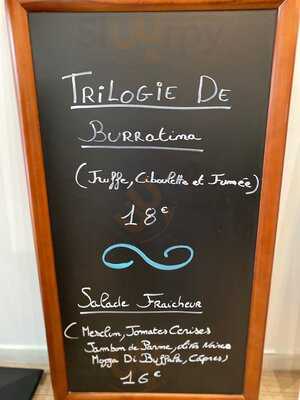 Trilogie De
Burratina
(Truffe, Ciboulette et Fumée)
18€
Salade Fraicheur
(Mesclun, Tomates Cerises
Jambon de Parme, olives Noires
Mozza Di Buffala, Câpres)
16€